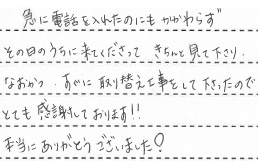 急に電話を入れたのにもかかわらず
その日のうちに来てくださって きちんと見て下さり、
なおかつ、すぐに取り替え工事をして下さったので
とても感謝しております!!
本当にありがとうございました!